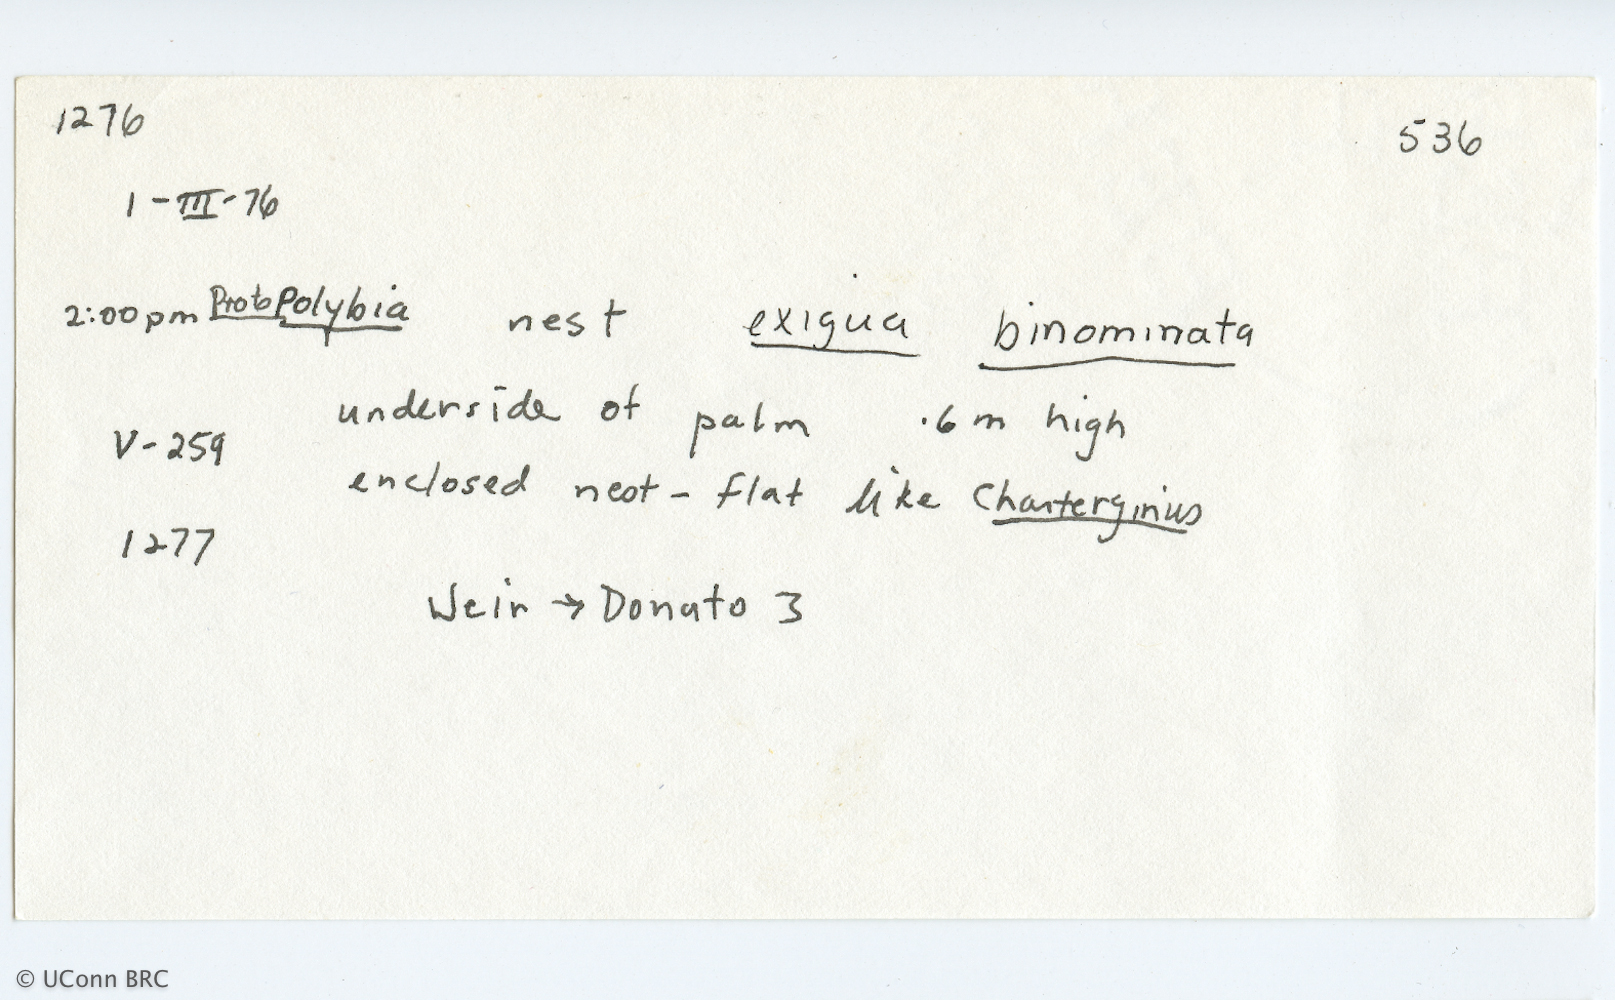 1276
536
1-III-76
2:00pm ProtoPolybia nest exigua binominata
underside of palm .6 m high
V-259
enclosed nest - flat like Charterginus
1277
Weir → Donato 3
© UConn BRC